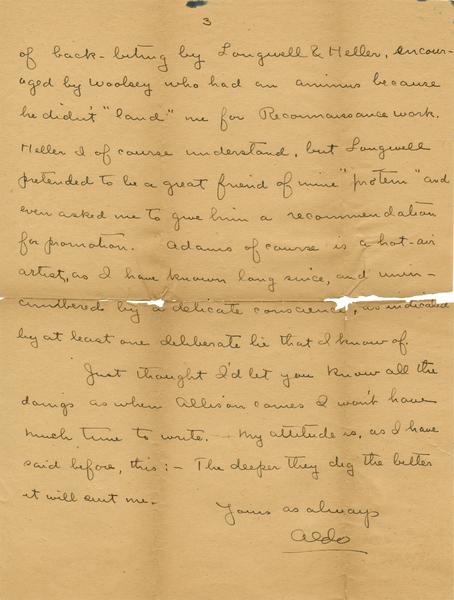 3
of back-biting by Longwell & Heller, encour-
aged by Woolsey who had an animus because
he didn't "land" me for Reconnaissance work.
Heller I of course understand, but Longwell
pretended to be a great friend of mine "protem" and
even asked me to give him a recommendation
for promotion. Adams of course is a hot-air
artist, as I have known long since, and unin-
cumbered by a delicate conscience, as indicated
by at least one deliberate lie that I know of.
Just thought I'd let you know all the
doings as when Allison comes I won't have
much time to write. My attitude is, as I have
said before, this:- The deeper they dig the better
it will suit me.
Yours as always
Aldo